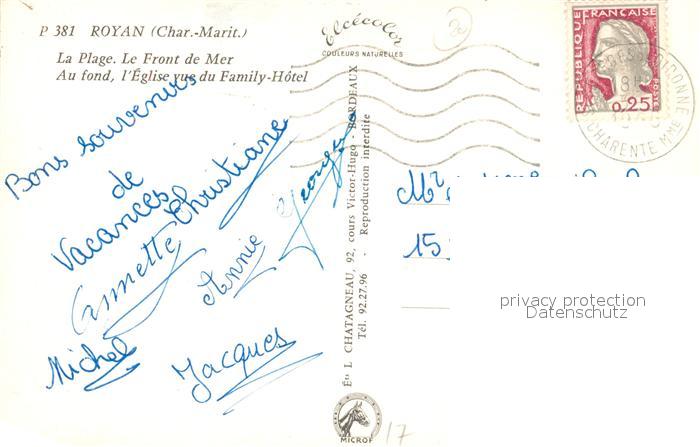 P 381 ROYAN (Char.-Marit.)
La Plage. Le Front de Mer
Au fond, l'Église vue du Family-Hôtel
Elcécolor
COULEURS NATURELLES
20
RÉPUBLIQUE FRANÇAISE
POSTES
0,25
18H
DIDONNE
CHARENTE MME
Bons souvenirs
de
Vacances
Christiane
Annette
Annie
Georges
Michel
Jacques
Éts L. CHATAGNEAU, 92, cours Victor-Hugo - BORDEAUX
Tél. 92.27.96 - Reproduction interdite
MICROF
17
Mr
15
privacy protection
Datenschutz